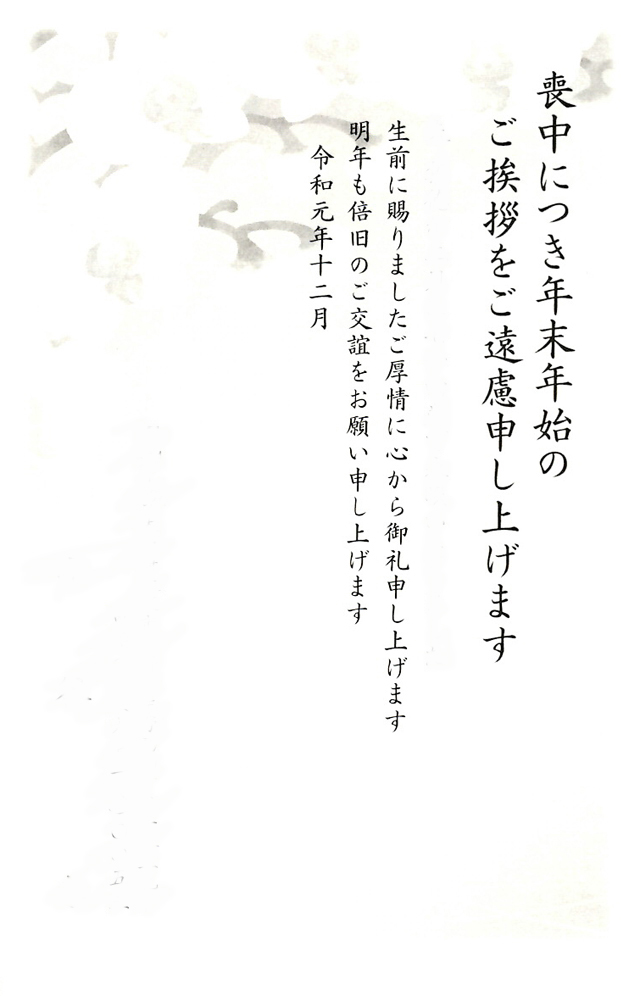 喪中につき年末年始の
ご挨拶をご遠慮申し上げます
生前に賜りましたご厚情に心から御礼申し上げます
明年も倍旧のご交誼をお願い申し上げます
令和元年十二月